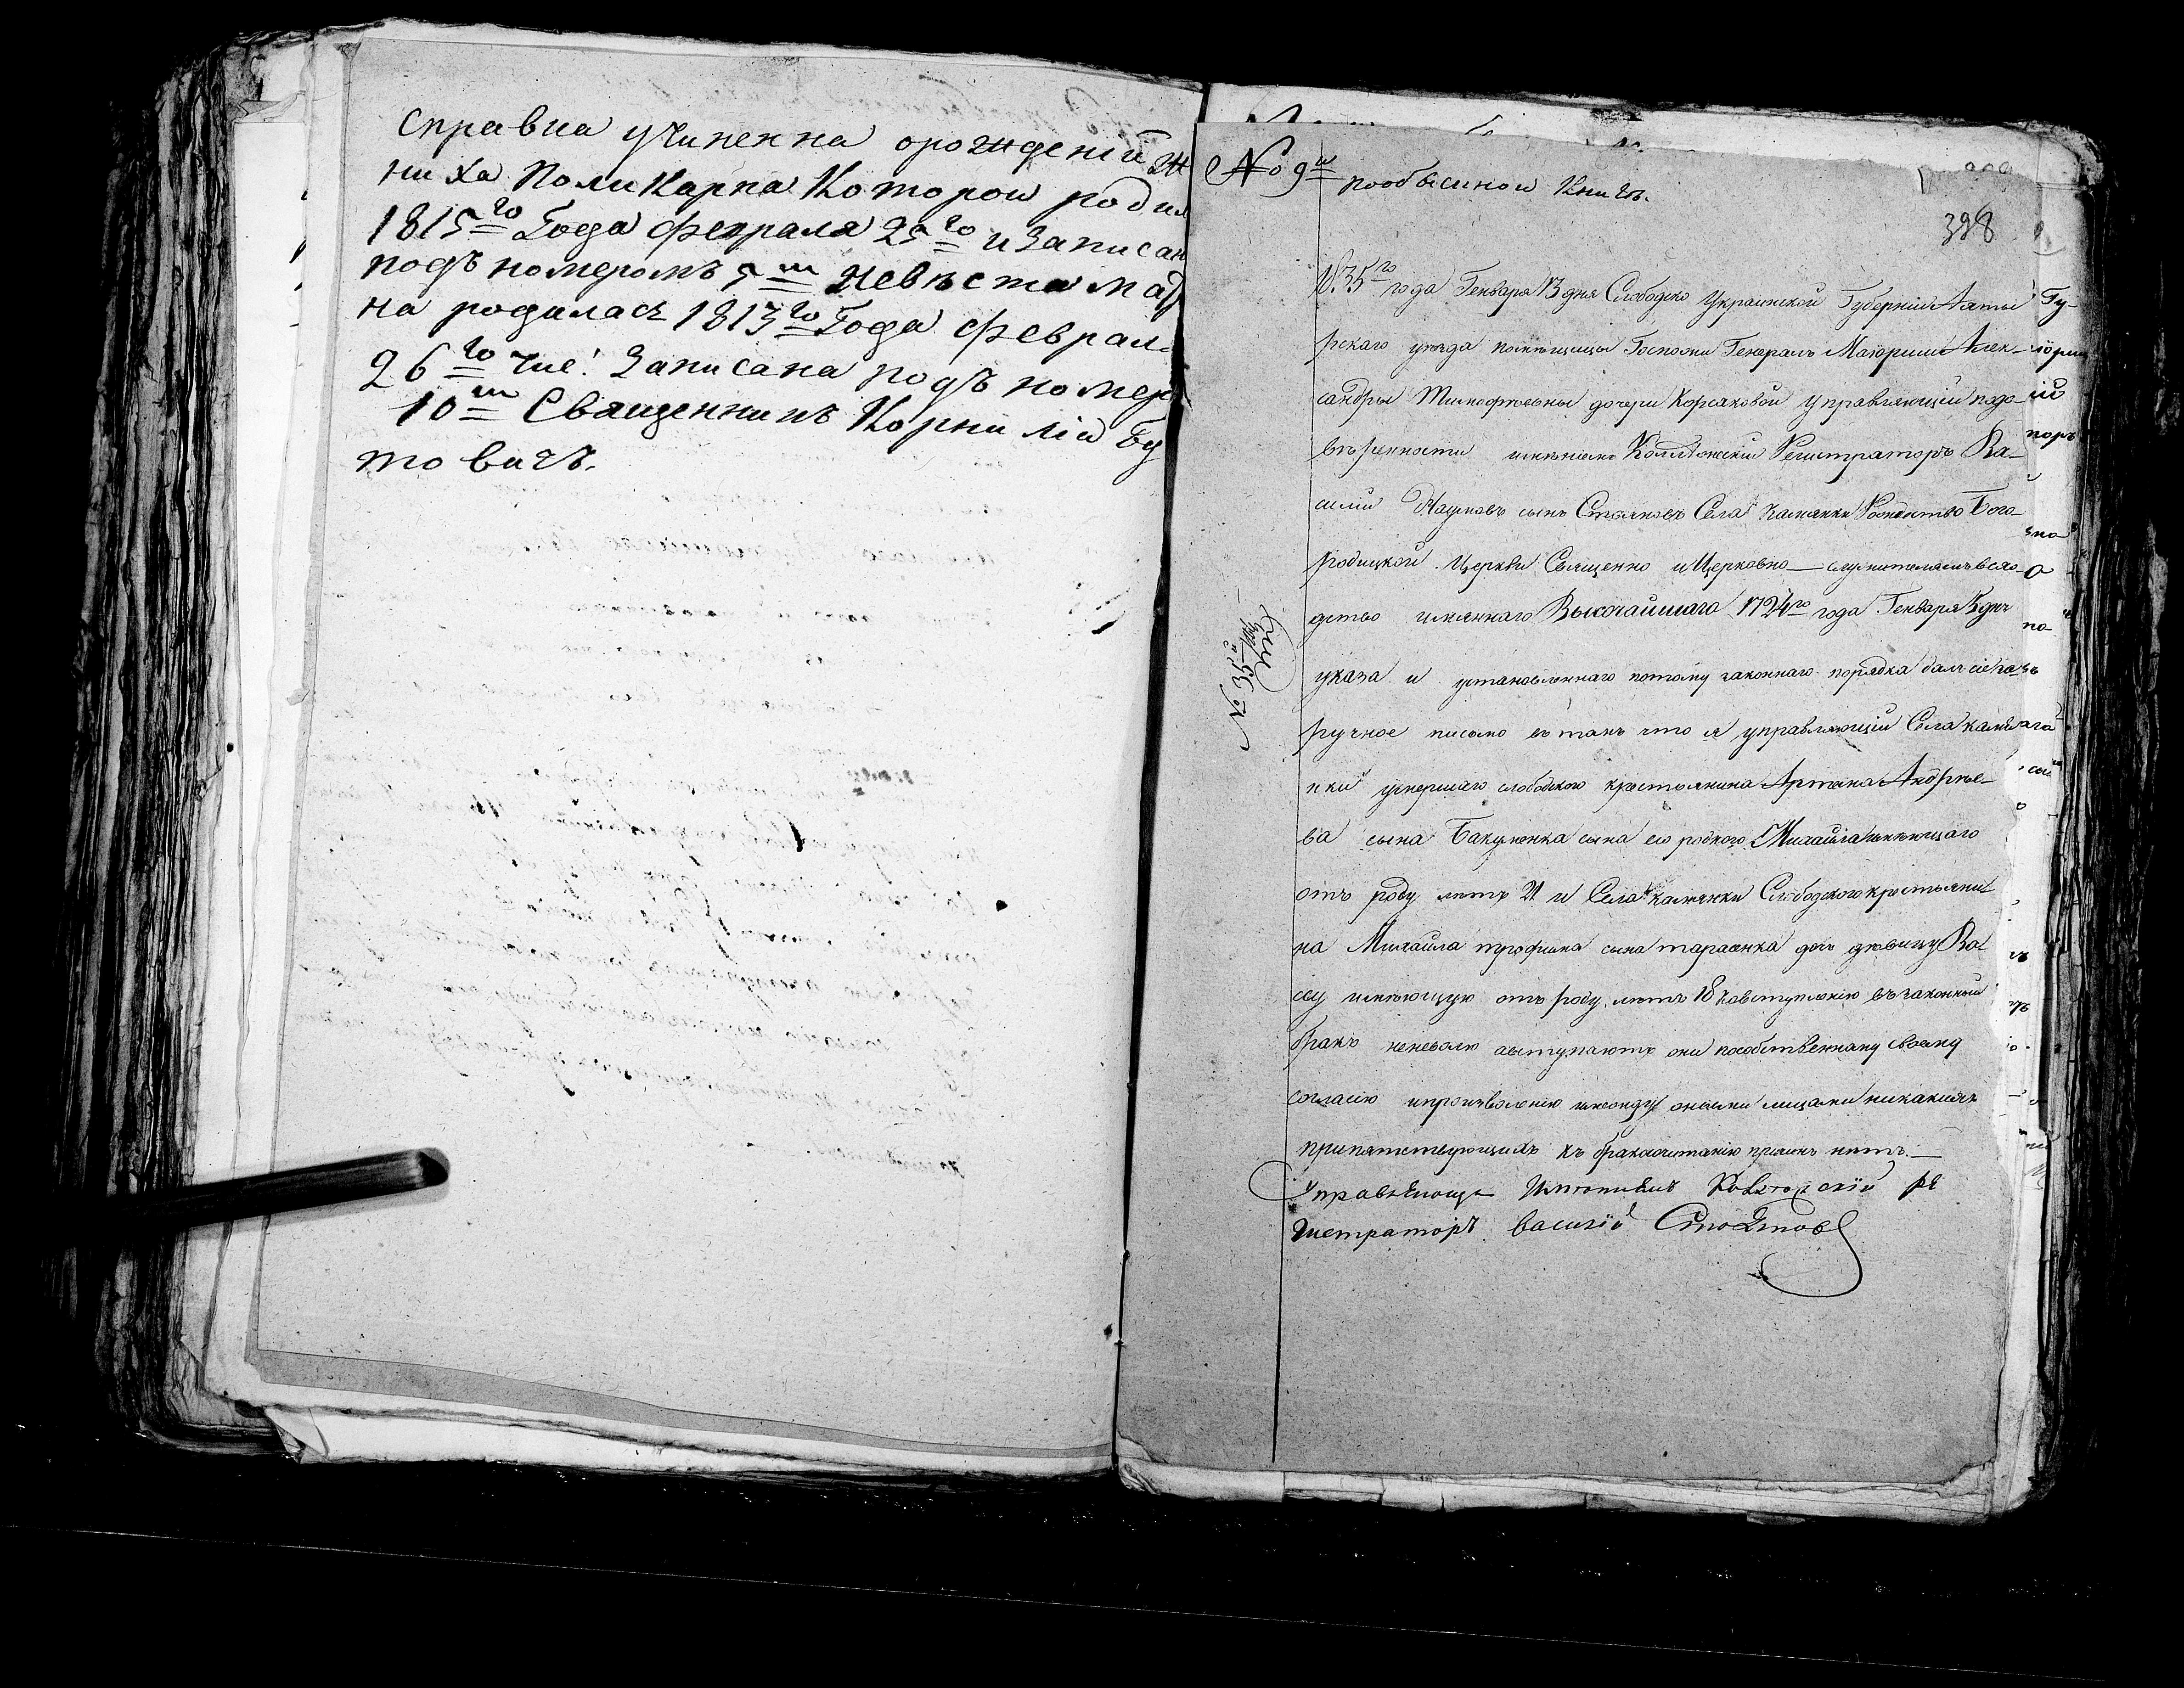 Справка учиненна орождений же
ниха Поликарпа Которои родил
1815го Года февраля 25го и Записан
подъ номеромъ 5м Невѣста Мар
на родилась 1813го Года феврал
26го чис: Записана подъ номер
10м Священникъ Корнилiй Бу
товичъ.
№ 9й
рообысной Книгѣ.
398
1835го года Генваря 13 дня Слободско Украинской Губернии
уѣзда помѣщицы Госпожи Генералъ Маюрши Алек-
сандры Тимофѣевны дочери Корсаковой управляющiй подо-
вѣренности имѣнiемъ Коллѣжскiй Регистраторъ Ва-
силiй Наумовъ сынъ Села Каменки Рождество Бого-
родицкой Церкви Священно и Церковно-служителямъ
имяннаго Высочайшаго 1724го года Генваря 5 дня
указа и установленнаго потому законнаго порядка далъ сiе
ручное письмо въ томъ что я управляющiй Села Камѣ-
нки умершаго слободского крестьянина Артема Андрѣе-
ва сына Бакуменка сына его родного Михаила имѣющаго
отъ роду лѣтъ 21 и Села Каменки Слободского крестьяни
на Михаила трофима сына тарасенка дочь дѣвицу Ва
ссу имѣющую отъ роду лѣтъ 18 ковступленiю въ законный
бракъ неневолю авступаютъ они пособственному своему
согласiю ипроизволенiю имежду оными лицами никакихъ
припятствующихъ къ бракосочитанiю причинъ нѣтъ.—
Управляюще Имѣниемъ Колѣжскiй ре
гистраторъ василiй
№ 35й